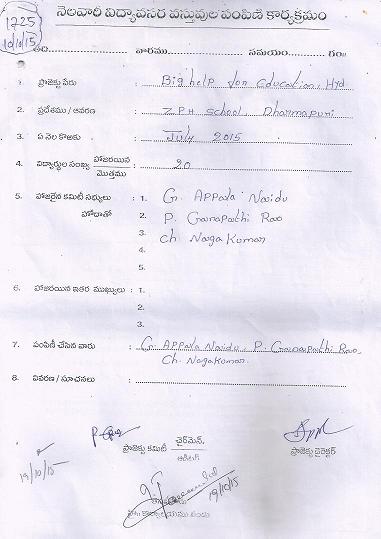 1225
10/10/15
నెలవారీ విద్యావసర వస్తువుల పంపిణీ కార్యక్రమం
తేది: వారము సమయం గం॥
1. ప్రాజెక్టు పేరు : Big help for Education, Hyd
2. ప్రదేశము / ఆవరణ : Z.P.H School, Dharmapuri
3. ఏ నెల కొఱకు : July 2015
4. విద్యార్థుల సంఖ్య హాజరయిన / మొత్తము : 20
5. హాజరైన కమిటీ సభ్యులు : 1. G. Appala Naidu
హోదాతో 2. P. Ganapathi Rao
3. Ch Naga Kumari
4.
5.
6. హాజరయిన ఇతర ముఖ్యులు : 1.
2.
3.
7. పంపిణీ చేసిన వారు : G. Appala Naidu, P. Ganapathi Rao,
Ch. Nagakumari.
8. వివరణ / సూచనలు :
ప్రాజెక్టు కమిటీ చైర్మెన్, / ఆడిటర్ ప్రాజెక్టు డైరెక్టర్
19/10/15
19/10/15